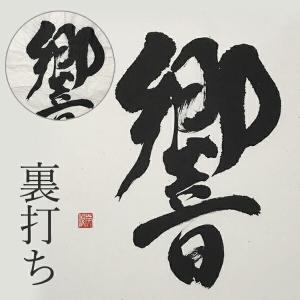 響
響
裏打ち